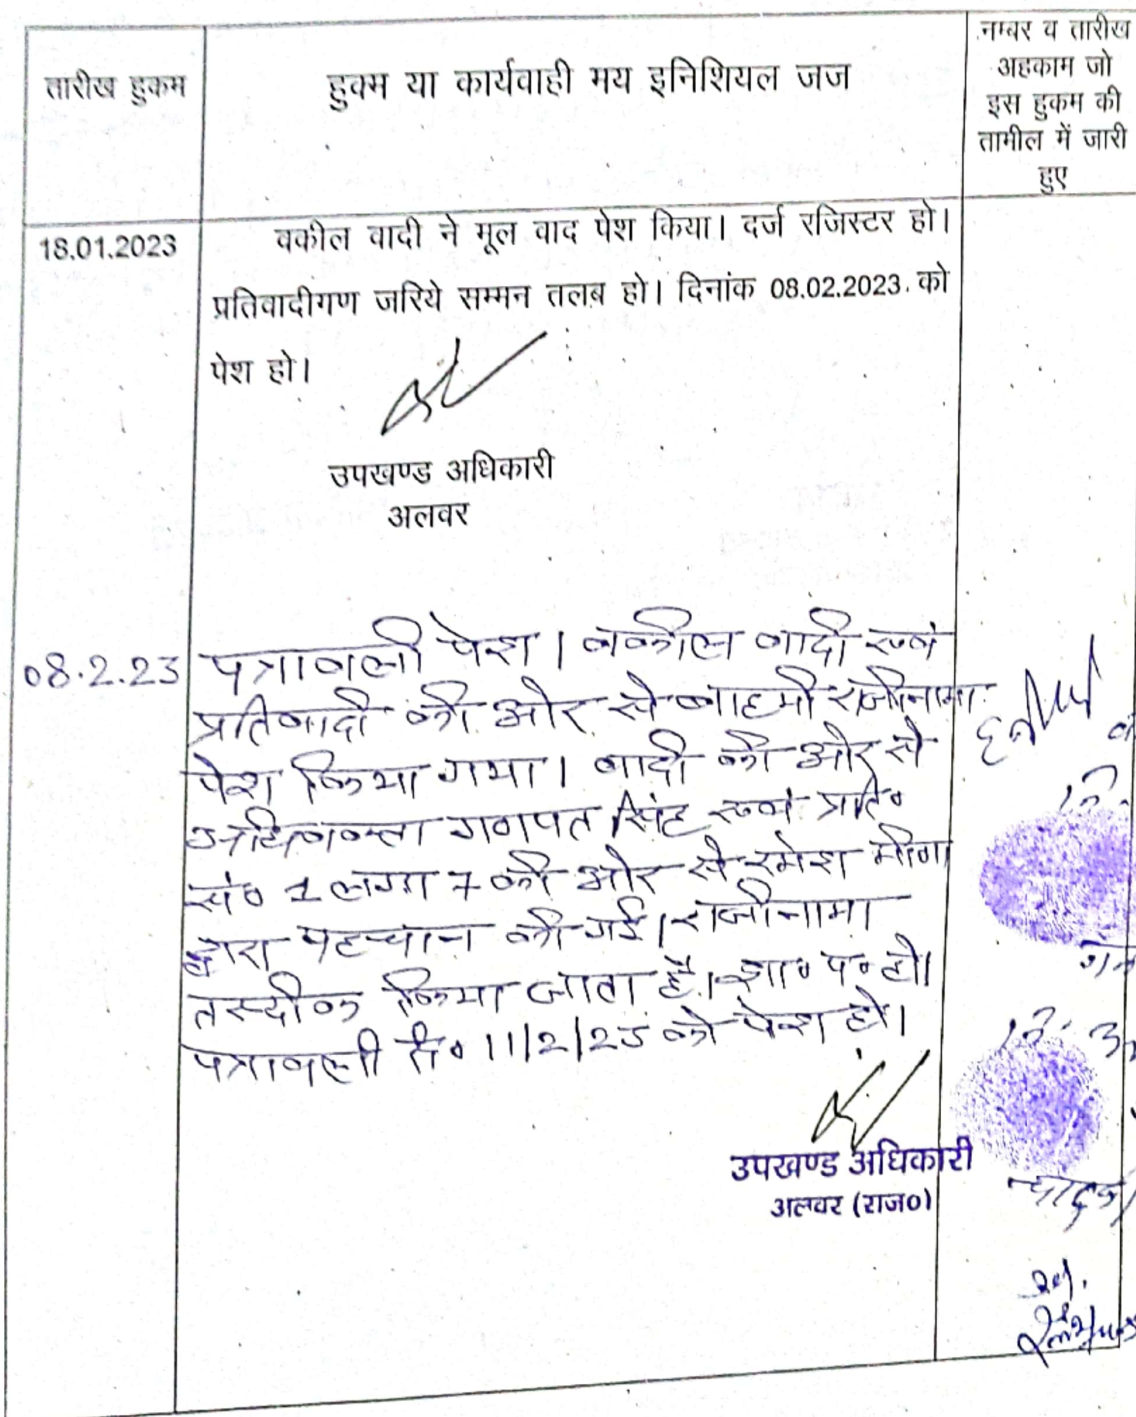 तारीख हुकम
हुक्म या कार्यवाही मय इनिशियल जज
नम्बर व तारीख
अहकाम जो
इस हुकम की
तामील में जारी
हुए
18.01.2023
वकील वादी ने मूल वाद पेश किया। दर्ज रजिस्टर हो।
प्रतिवादीगण जरिये सम्मन तलब हो। दिनांक 08.02.2023. को
पेश हो।
उपखण्ड अधिकारी
अलवर
08.2.23
पत्रावली पेश। वकील वादी एवं
प्रतिवादी की ओर से बाहमी राजीनामा
पेश किया गया। वादी की ओर से
अधिवक्ता गणपत सिंह एवं प्रति०
सं० 1 लगा 7 की ओर से रमेश मीणा
द्वारा पहचान की गई। राजीनामा
तस्दीक किया जाता है। शा० प० हो।
पत्रावली दि० 11/2/23 को पेश हो।
उपखण्ड अधिकारी
अलवर (राज०)